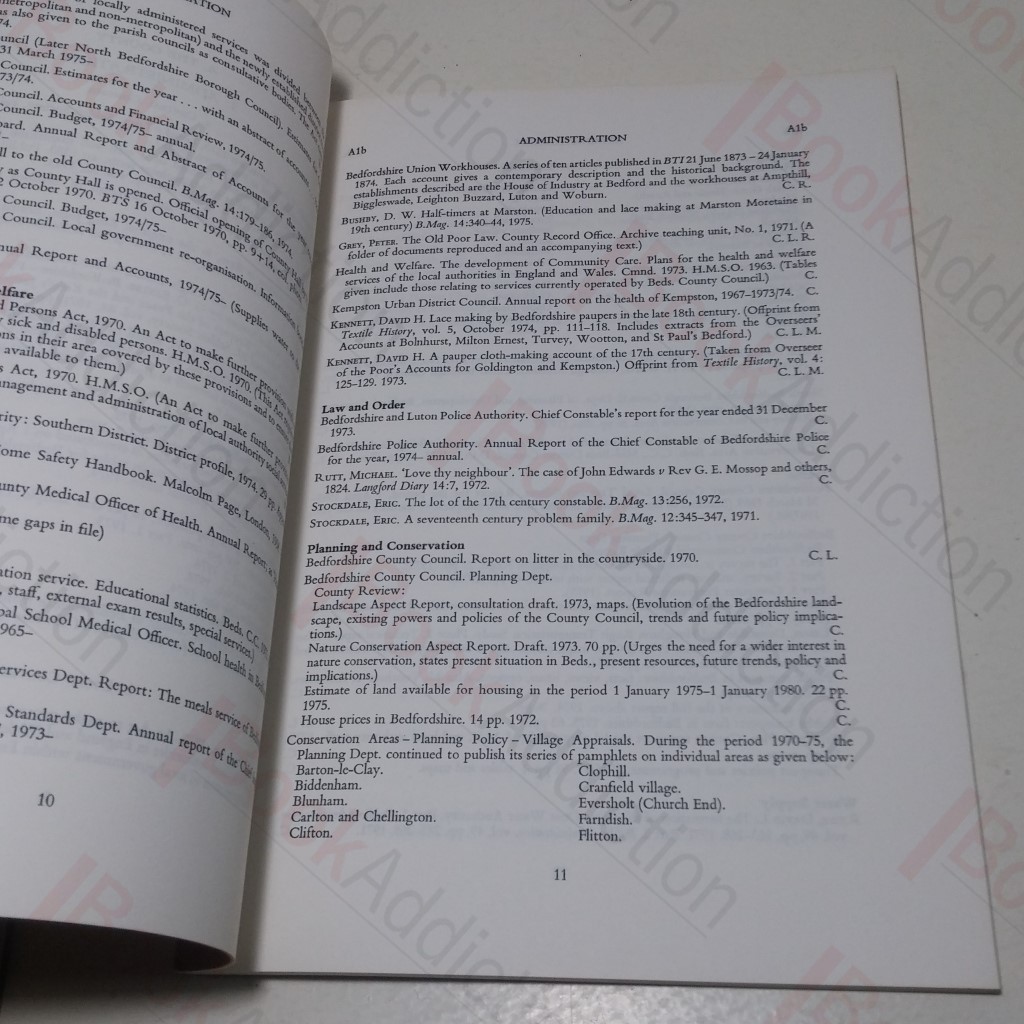 TION
locally administered services was divided between
metropolitan and non-metropolitan) and the newly established
s also given to the parish councils as consultative bodies. The
74.
uncil (Later North Bedfordshire Borough Council). Estimates
31 March 1975–
Council. Estimates for the year . . . with an abstract of accounts
73/74.
Council. Accounts and Financial Review, 1974/75.
Council. Budget, 1974/75– annual.
oard. Annual Report and Abstract of Accounts for the year
ll to the old County Council. B.Mag. 14:179–186, 1974.
y as County Hall is opened. Official opening of County Hall
2 October 1970. BTS 16 October 1970, pp. 9+14, col. plates
Council. Budget, 1974/75–
Council. Local government re-organisation. Information
nual Report and Accounts, 1974/75– (Supplies water to
elfare
d Persons Act, 1970. An Act to make further provision
y sick and disabled persons. H.M.S.O. 1970. (This Act
ons in their area covered by these provisions and to
available to them.)
s Act, 1970. H.M.S.O. (An Act to make further provision
nagement and administration of local authority social
rity: Southern District. District profile, 1974. 29 pp.
ome Safety Handbook. Malcolm Page, London,
unty Medical Officer of Health. Annual Report,
me gaps in file)
ation service. Educational statistics. Beds. C.C.
, staff, external exam results, special services.)
pal School Medical Officer. School health in Beds.
965–
ervices Dept. Report: The meals service of
Standards Dept. Annual report of the Chief
, 1973–
10
A1b ADMINISTRATION A1b
Bedfordshire Union Workhouses. A series of ten articles published in BTI 21 June 1873 – 24 January
1874. Each account gives a contemporary description and the historical background. The
establishments described are the House of Industry at Bedford and the workhouses at Ampthill,
Biggleswade, Leighton Buzzard, Luton and Woburn. C. R.
BUSHBY, D. W. Half-timers at Marston. (Education and lace making at Marston Moretaine in
19th century) B.Mag. 14:340–44, 1975.
GREY, PETER. The Old Poor Law. County Record Office. Archive teaching unit, No. 1, 1971. (A
folder of documents reproduced and an accompanying text.) C. L. R.
Health and Welfare. The development of Community Care. Plans for the health and welfare
services of the local authorities in England and Wales. Cmnd. 1973. H.M.S.O. 1963. (Tables
given include those relating to services currently operated by Beds. County Council.) C.
Kempston Urban District Council. Annual report on the health of Kempston, 1967–1973/74. C.
KENNETT, DAVID H. Lace making by Bedfordshire paupers in the late 18th century. (Offprint from
Textile History, vol. 5, October 1974, pp. 111–118. Includes extracts from the Overseers'
Accounts at Bolnhurst, Milton Ernest, Turvey, Wootton, and St Paul's Bedford.) C. L. M.
KENNETT, DAVID H. A pauper cloth-making account of the 17th century. (Taken from Overseer
of the Poor's Accounts for Goldington and Kempston.) Offprint from Textile History, vol. 4:
125–129. 1973. C. L. M.
Law and Order
Bedfordshire and Luton Police Authority. Chief Constable's report for the year ended 31 December
1973. C.
Bedfordshire Police Authority. Annual Report of the Chief Constable of Bedfordshire Police
for the year, 1974– annual. C.
RUTT, MICHAEL. 'Love thy neighbour'. The case of John Edwards v Rev G. E. Mossop and others,
1824. Langford Diary 14:7, 1972. C.
STOCKDALE, ERIC. The lot of the 17th century constable. B.Mag. 13:256, 1972.
STOCKDALE, ERIC. A seventeenth century problem family. B.Mag. 12:345–347, 1971.
Planning and Conservation
Bedfordshire County Council. Report on litter in the countryside. 1970. C. L.
Bedfordshire County Council. Planning Dept.
County Review:
Landscape Aspect Report, consultation draft. 1973, maps. (Evolution of the Bedfordshire land-
scape, existing powers and policies of the County Council, trends and future policy implica-
tions.) C.
Nature Conservation Aspect Report. Draft. 1973. 70 pp. (Urges the need for a wider interest in
nature conservation, states present situation in Beds., present resources, future trends, policy and
implications.) C.
Estimate of land available for housing in the period 1 January 1975–1 January 1980. 22 pp.
1975. C.
House prices in Bedfordshire. 14 pp. 1972. C.
Conservation Areas – Planning Policy – Village Appraisals. During the period 1970–75, the
Planning Dept. continued to publish its series of pamphlets on individual areas as given below:
Barton-le-Clay. Clophill.
Biddenham. Cranfield village.
Blunham. Eversholt (Church End).
Carlton and Chellington. Farndish.
Clifton. Flitton.
11
BookAddiction